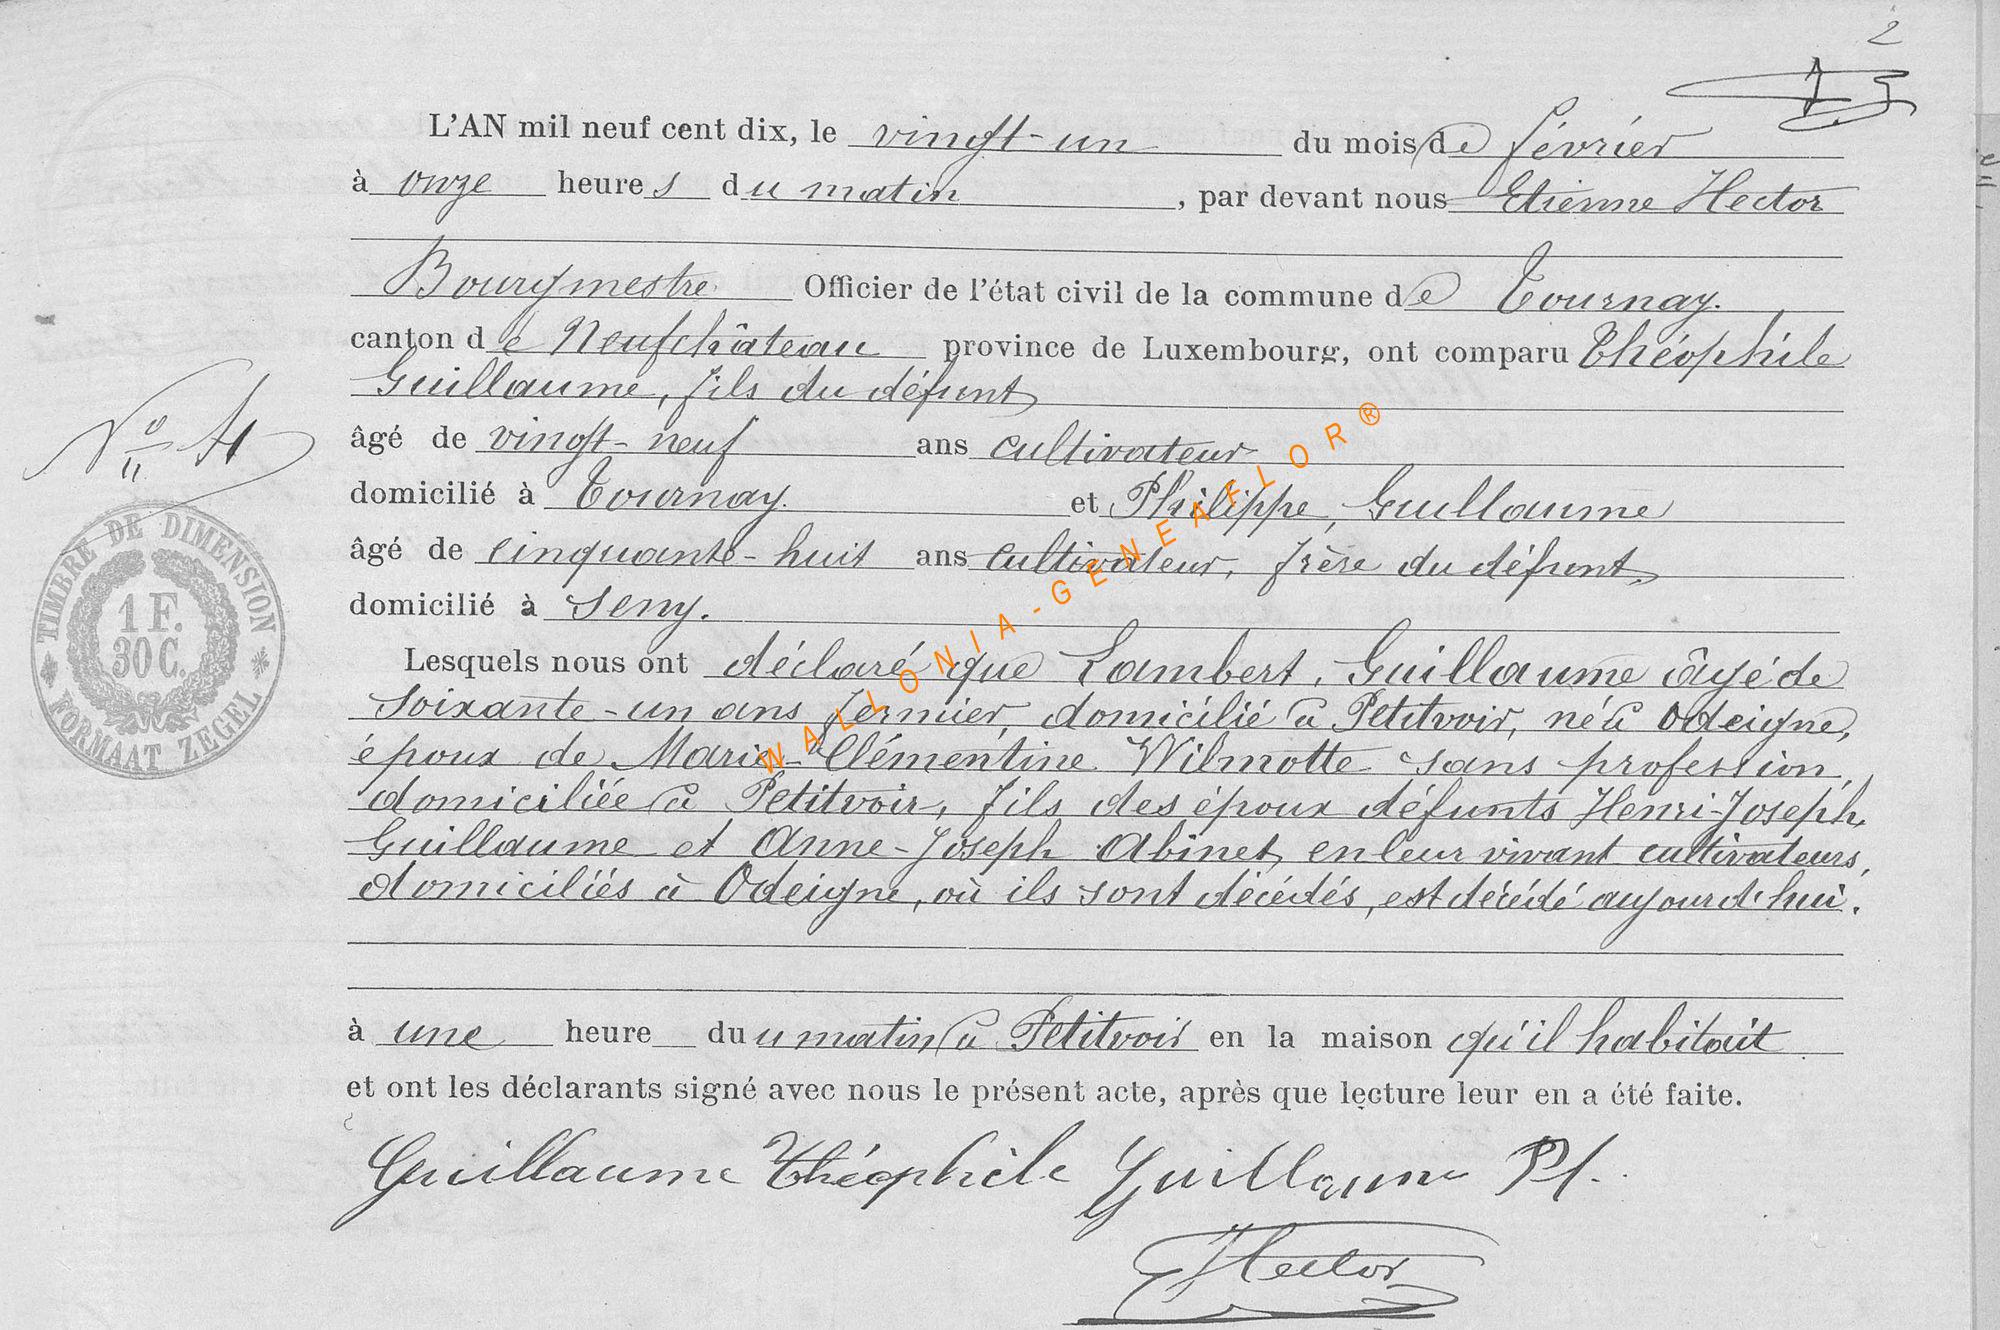 2
L'AN mil neuf cent dix, le vingt-un du mois de février
à onze heures du matin, par devant nous Etienne Hector
Bourgmestre Officier de l'état civil de la commune de Tournay.
canton de Neufchâteau province de Luxembourg, ont comparu Théophile
Guillaume, fils du défunt
N°
âgé de vingt-neuf ans cultivateur
domicilié à Tournay. et Philippe, Guillaume
âgé de cinquante-huit ans cultivateur, frère du défunt,
domicilié à Seny.
TIMBRE DE DIMENSION
1 F.
30 C.
FORMAAT ZEGEL
Lesquels nous ont déclaré que Lambert, Guillaume âgé de
soixante-un ans fermier, domicilié à Petitvoir, né à Odeigne,
époux de Marie-Clémentine Wilmotte sans profession,
domiciliée à Petitvoir, fils des époux défunts Henri-Joseph,
Guillaume et Anne-Joseph Abinet, en leur vivant cultivateurs,
domiciliés à Odeigne, où ils sont décédés, est décédé aujourd'hui.
à une heure du u matin à Petitvoir en la maison qu'il habitait
et ont les déclarants signé avec nous le présent acte, après que lecture leur en a été faite.
Guillaume Théophile Guillaume Ph.
Hector
WALLONIA-GENEAFLOR®